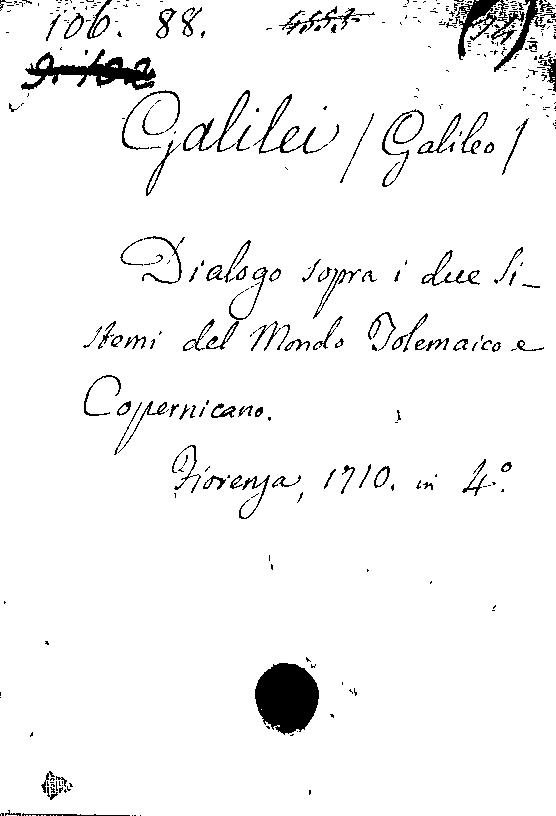 106. 88.
Galilei / Galileo /
Dialogo sopra i due Si-
stemi del Mondo Tolemaico e
Copernicano.
Fiorenza, 1710. in 4º.